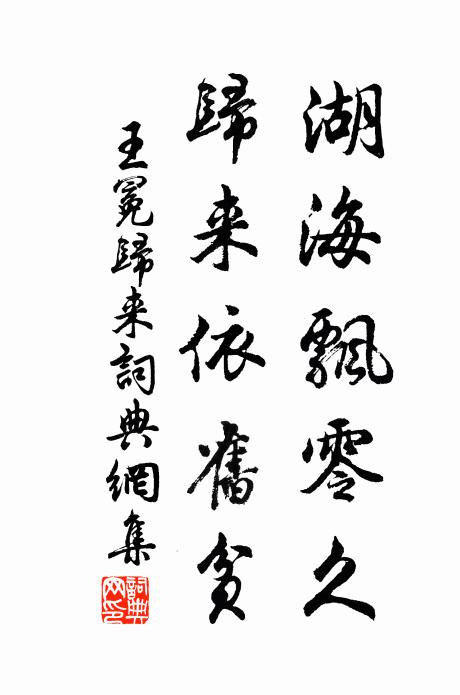 湖海飄零久
歸来依舊貧
王冕歸来詞典網集
詞典
网印